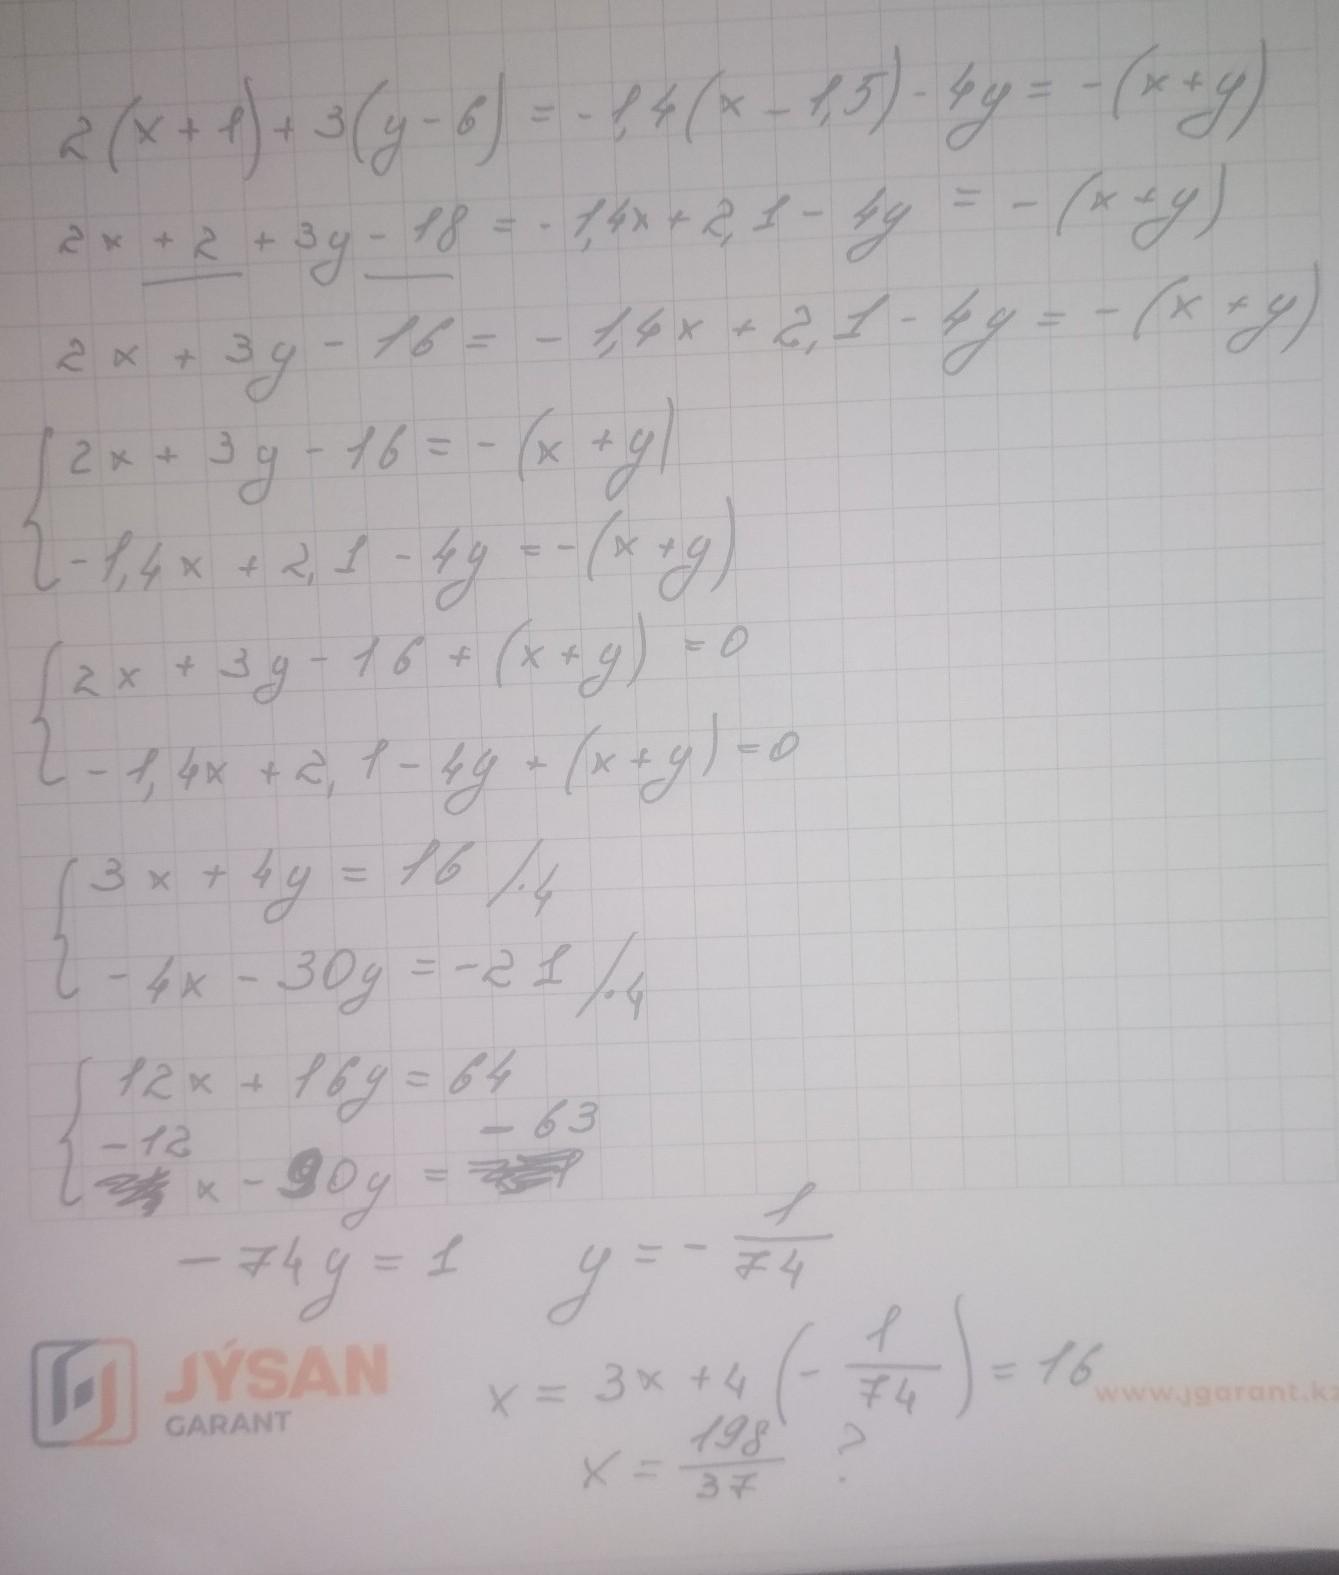 2(x+1)+3(y-6)=-1,4(x-1,5)-4y=-(x+y)
2x+2+3y-18=-1,4x+2,1-4y=-(x+y)
2x+3y-16=-1,4x+2,1-4y=-(x+y)
2x+3y-16=-(x+y)
-1,4x+2,1-4y=-(x+y)
2x+3y-16+(x+y)=0
-1,4x+2,1-4y+(x+y)=0
3x+4y=16 /·4
-4x-30y=-21 /·4
12x+16y=64
-12x-90y=-63
-74y=1 y=-1/74
x=3x+4(-1/74)=16
x=198/37 ?
JÝSAN
GARANT
www.jgarant.kz